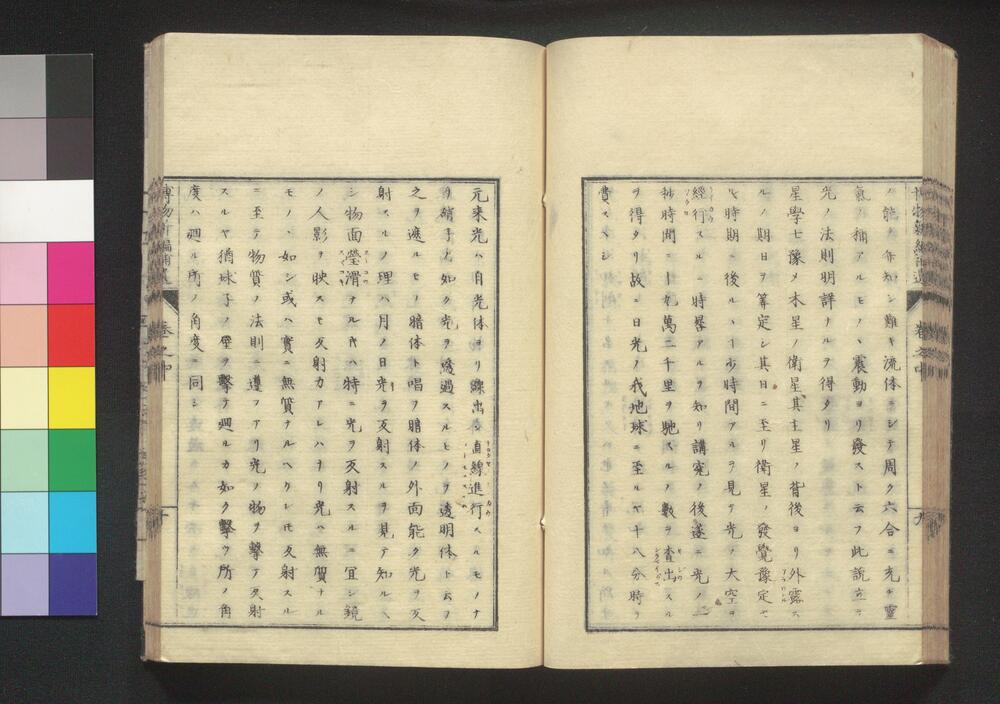 能ク 知シ難キ流体ニシテ周ク六合ニ充ヂ靈
氣ノ稱アルモノヽ震動ヨリ發スト云フ此說立テ
光ノ法則明詳ナルヲ得タリ
星學士豫メ木星ノ衛星其主星ノ背後ヨリ外露ス
ルノ期日ヲ筭定シ其日ニ至リ衛星ノ發覺豫定セ
ル時期ニ後ルヽ少時間アルヲ見テ光ノ大空ヲ
經行スルニ時晷アルヲ知リ講究ノ後遂ニ光ノ一
抄時間ニ十九萬二千里ヲ馳スルノ數ヲ査出スル
ヲ得タリ故ニ日光ノ我地球ニ至ルヤ十八分時ヲ
費スベシ
元来光ハ自光体ヨリ線出シ直線進行スルモノナ
リ硝子ノ如ク光ヲ透過スルモノヲ透明体ト云フ
之ヲ遮ルモノヲ暗体ト唱フ暗体ノ外面能ク光ヲ反
射スルノ理ハ月ノ日光ヲ反射スルヲ見テ知ルヘ
シ物面瑩滑ナル片ハ特ニ光ヲ反射スルニ冝シ鏡
ノ人影ヲ映スモ反射力アレハナリ光ハ無質ナル
モノヽ如シ或ハ實ニ無質ナルヘクレ㔫反射スル
ニ至テ物質ノ法則ニ遵フアリ光ノ物ヲ擊テ反射
スルヤ猶球子ノ壁ヲ擊テ迴ルカ如ク擊ツ所ノ角
度ハ迴ル所ノ角度ニ同シ
卷之中
九
卷之中
十